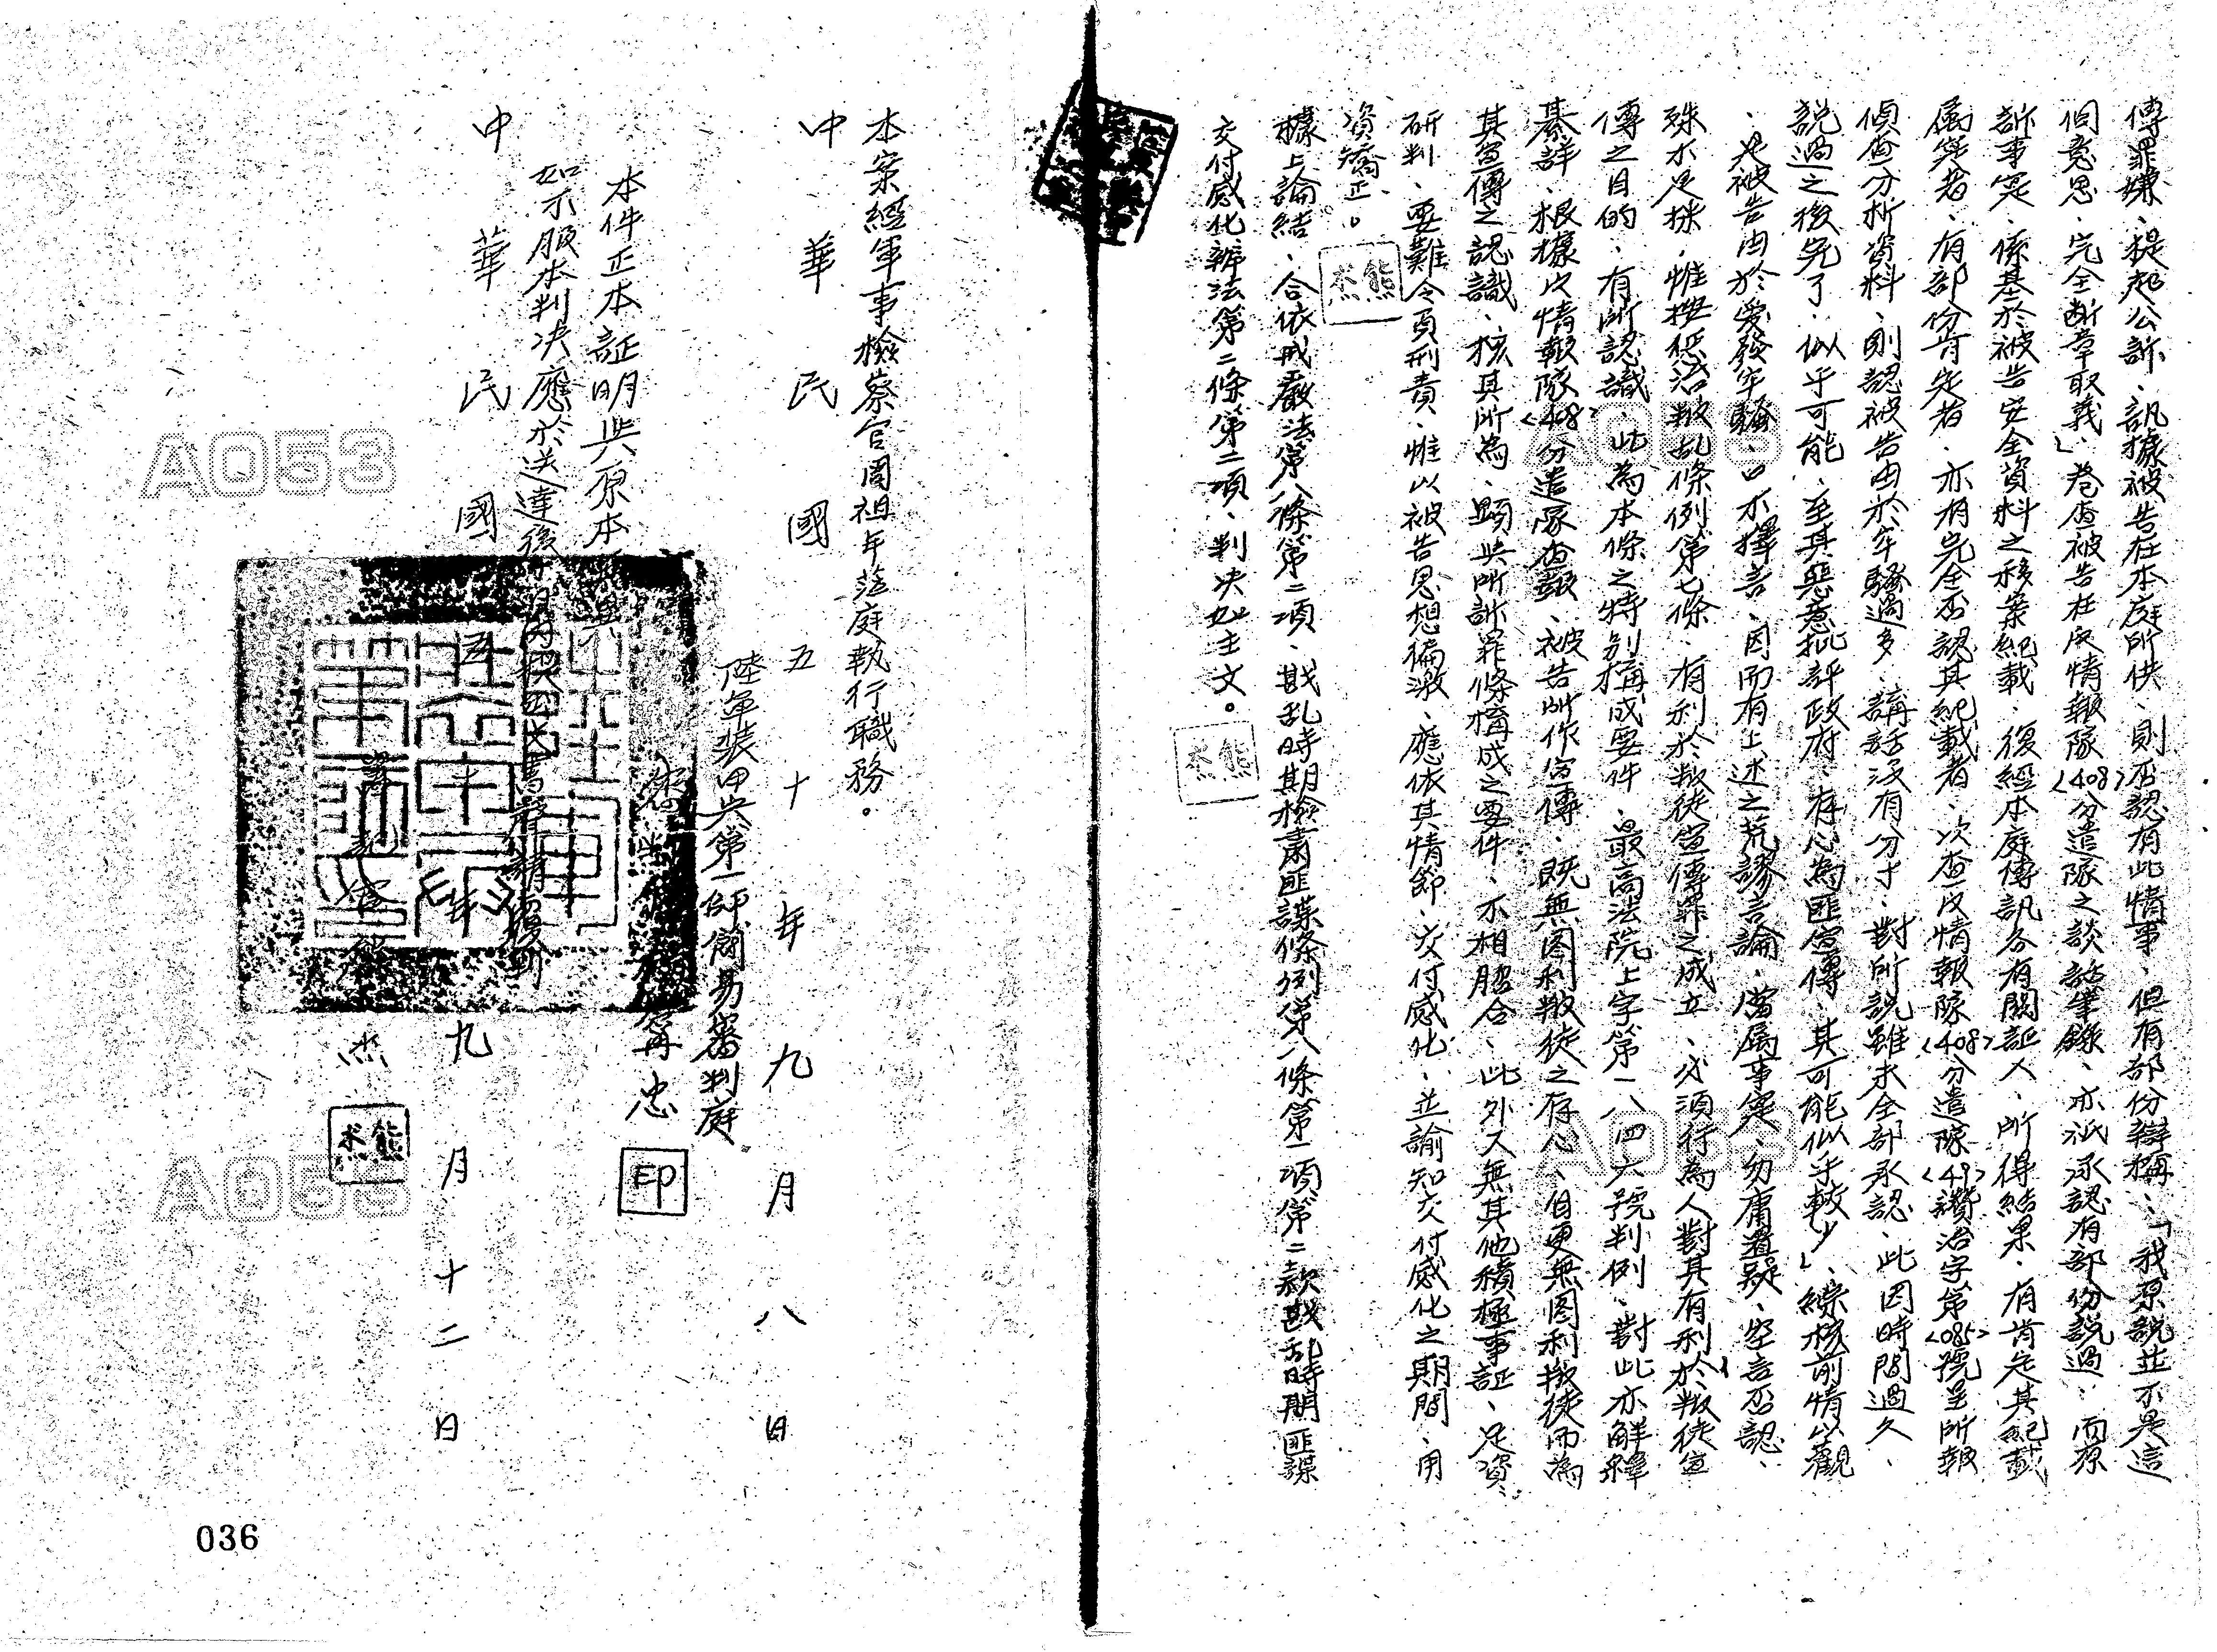 傳罪嫌、提起公訴、訊據被告在本庭所供、則否認有此情事、但有部份辯稱：「我原說並不是這
個意思、完全斷章取義」、卷查被告在反情報隊<408>分遣隊之談話筆錄、亦祇承認有部份說過：而原
訴事實、係基於被告安全資料之移案紀載、復經本庭傳訊各有關証人、所得結果、有肯定其紀載
屬實者、有部份肯定者、亦有完全否認其紀載者、次查反情報隊<408>分遣隊<49>讚洽字第<085>號呈所報
偵查分析資料、則認被告由於牢騷過多、講話沒有分寸、對所說雖未全部承認、此因時間過久、
說過之後完了、似乎可能、至其惡意批評政府、存心為匪宣傳、其可能似乎較少」、綜核前情以觀
、是被告由於愛發牢騷、口不擇言、因而有上述之荒謬言論、當屬事實、勿庸置疑、空言否認、
殊不足採、惟按懲治叛乱條例第七條、有利於叛徒宣傳罪之成立、必須行為人對其有利於叛徒宣
傳之目的、有所認識、此為本條之特別構成要件、最高法院上字第一八四六號判例、對此亦解釋
綦詳、根據反情報隊<408>分遣隊查報、被告所作宣傳、既無图利叛徒之存心、自更無图利叛徒而為
其宣傳之認識、核其所為、顯與所訴罪條構成之要件、不相脗合、此外又無其他積極事証、足資
研判、要難令負刑責、惟以被告思想偏激、應依其情節、交付感化、並諭知交付感化之期間、用
資矯正。
熊杰
據上論結、合依戒嚴法第八條第二項、戡乱時期檢肅匪諜條例第八條第一項第二款戡乱時期匪諜
交付感化辦法第二條第二項、判決如主文。
熊杰
本案經軍事檢察官周祖年蒞庭執行職務。
中華民國五十年九月八日
陸軍裝甲兵第一師簡易審判庭
忠
印
本件正本証明與原本無異
如不服本判決應於送達後日內聲請覆判
中華民國五十年九月十二日
書記官熊杰
熊杰
036
A053
A053
A053
A053